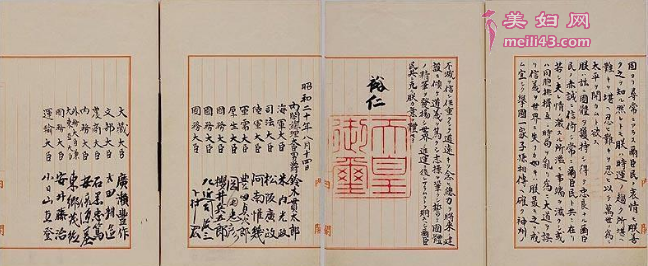 美妇网
meili43.com
固ヨリ尋常ニアラス爾臣民ノ衷情モ朕善
ク之ヲ知ル然レトモ朕ハ時運ノ趨ク所堪ヘ
難キヲ堪ヘ忍ヒ難キヲ忍ヒ以テ萬世ノ爲ニ
太平ヲ開カムト欲ス
朕ハ茲ニ國體ヲ護持シ得テ忠良ナル爾臣
民ノ赤誠ニ信倚シ常ニ爾臣民ト共ニ在リ
若シ夫レ情ノ激スル所濫ニ事端ヲ滋クシ或
ハ同胞排擠互ニ時局ヲ亂リ爲ニ大道ヲ誤
リ信義ヲ世界ニ失フカ如キハ朕最モ之ヲ戒
ム宜シク擧國一家子孫相傳ヘ確ク神州ノ
不滅ヲ信シ任重クシテ道遠キヲ念ヒ總力ヲ將來ノ建
設ニ傾ケ道義ヲ篤クシ志操ヲ鞏クシ誓テ國體
ノ精華ヲ發揚シ世界ノ進運ニ後レサラムコトヲ期スヘシ爾臣
民其レ克ク朕カ意ヲ體セヨ
裕仁
天皇
御璽
昭和二十年八月十四日
内閣總理大臣男爵 鈴木貫太郎
海軍大臣 米内光政
司法大臣 松阪廣政
陸軍大臣 阿南惟幾
軍需大臣 豐田貞次郎
厚生大臣 岡田忠彦
國務大臣 櫻井兵五郎
國務大臣 左近司政三
國務大臣 下村宏
大藏大臣 廣瀨豐作
文部大臣 太田耕造
農商大臣 石黑忠篤
内務大臣 安倍源基
外務大臣兼大東亞大臣 東鄕茂德
國務大臣 安井藤治
運輸大臣 小日山直登